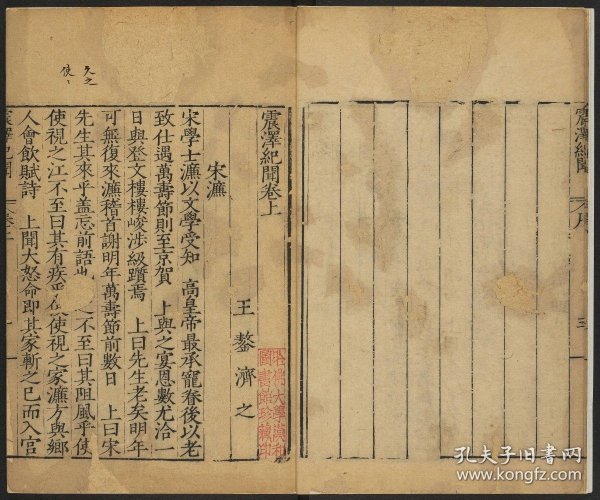 震澤紀聞
震澤紀聞卷上
王鏊濟之
宋濂
宋學士濂以文學受知　高皇帝最承寵眷後以老
致仕遇萬壽節則至京賀　上與之宴恩數尤洽一
日與登文樓樓峻涉級躓焉　上曰先生老矣明年
可無復來濂稽首謝明年萬壽節前數日　上曰宋
先生其來乎蓋忘前語也　之不至曰其阻風乎使
使視之江不至曰其有疾乎　使視之家濂方與鄉
人會飲賦詩　上聞大怒命即其家斬之已而入宮
久之
使
哈佛大學漢和
圖書館珍藏印
孔夫子旧书网
www.kongfz.com